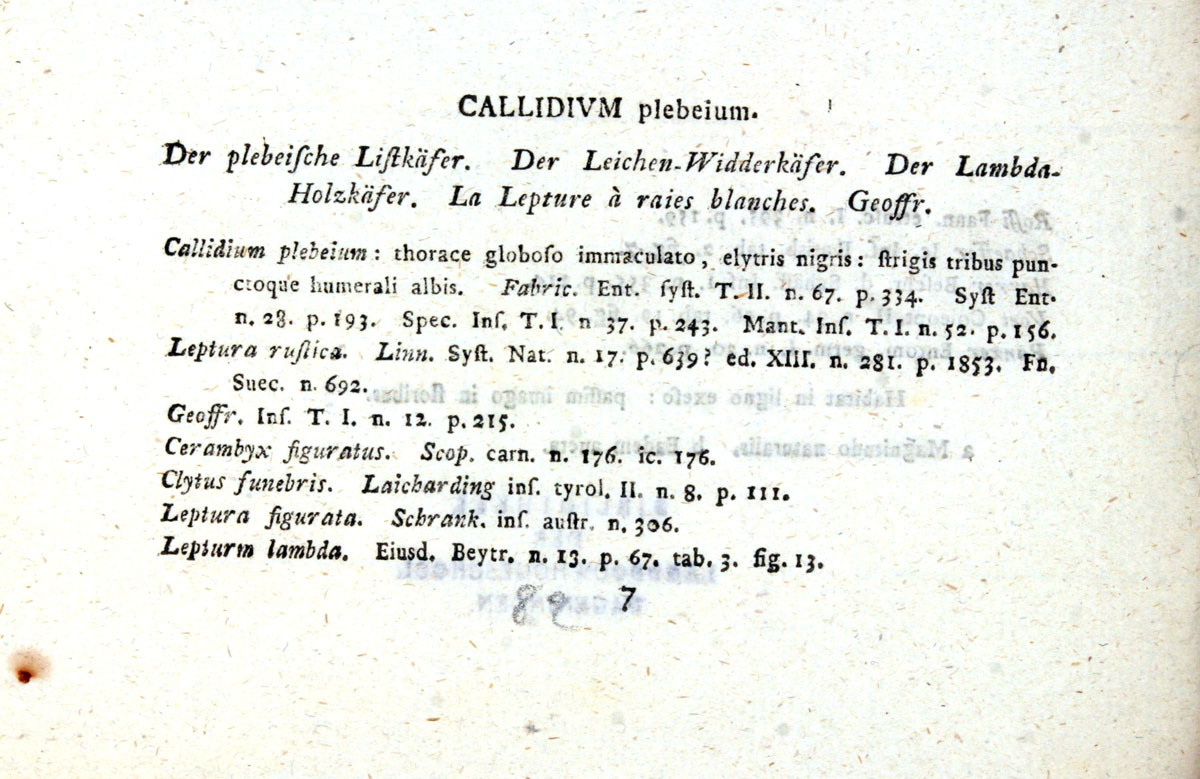 CALLIDIVM plebeium.
Der plebeiſche Liſtkäfer. Der Leichen-Widderkäfer. Der Lambda-
Holzkäfer. La Lepture à raies blanches. Geoffr.
Callidium plebeium: thorace globoſo immaculato, elytris nigris: ſtrigis tribus pun-
ctoque humerali albis. Fabric. Ent. ſyſt. T. II. n. 67. p. 334. Syſt Ent.
n. 28. p. 193. Spec. Inſ. T. I. n 37. p. 243. Mant. Inſ. T. I. n. 52. p. 156.
Leptura ruſtica. Linn. Syſt. Nat. n. 17. p. 639? ed. XIII. n. 281. p. 1853. Fn.
Suec. n. 692.
Geoffr. Inſ. T. I. n. 12. p. 215.
Cerambyx figuratus. Scop. carn. n. 176. ic. 176.
Clytus funebris. Laicharding inſ. tyrol. II. n. 8. p. 111.
Leptura figurata. Schrank. inſ. auſtr. n. 306.
Lepturm lambda. Eiusd. Beytr. n. 13. p. 67. tab. 3. fig. 13.
7